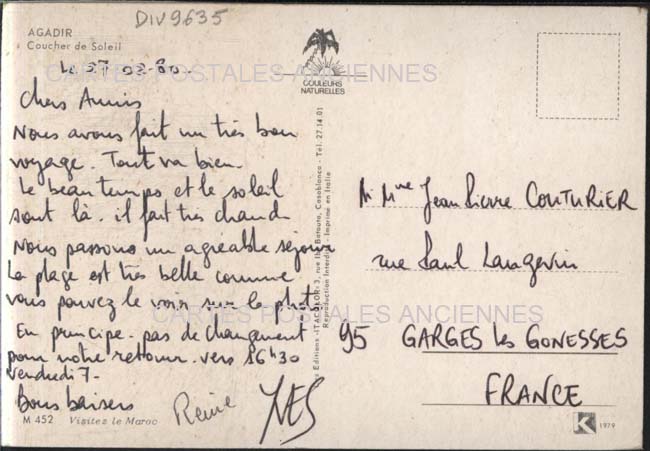 DIV9635
AGADIR
Coucher de Soleil
CARTES POSTALES ANCIENNES
COULEURS
NATURELLES
Le 27-02-80-
Chers Amis
Nous avons fait un très bon
voyage. Tout va bien.
Le beau temps et le soleil
sont là. il fait très chaud
Nous passons un agréable séjour
La plage est très belle comme
vous pouvez le voir sur la photo
En principe. pas de changement
pour notre retour. vers 16h30
vendredi 7-
Bons baisers
Reine
YVES
M 452 Visitez le Maroc
Editions "ITACOLOR" 3, rue Ibn Batouta, Casablanca - Tél. 27.14.01
Reproduction Interdite - Imprimé en Italie
M Mme Jean Pierre COUTURIER
rue Paul Langevin
CARTES POSTALES ANCIENNES
95 GARGES les GONESSES
FRANCE
K 1979